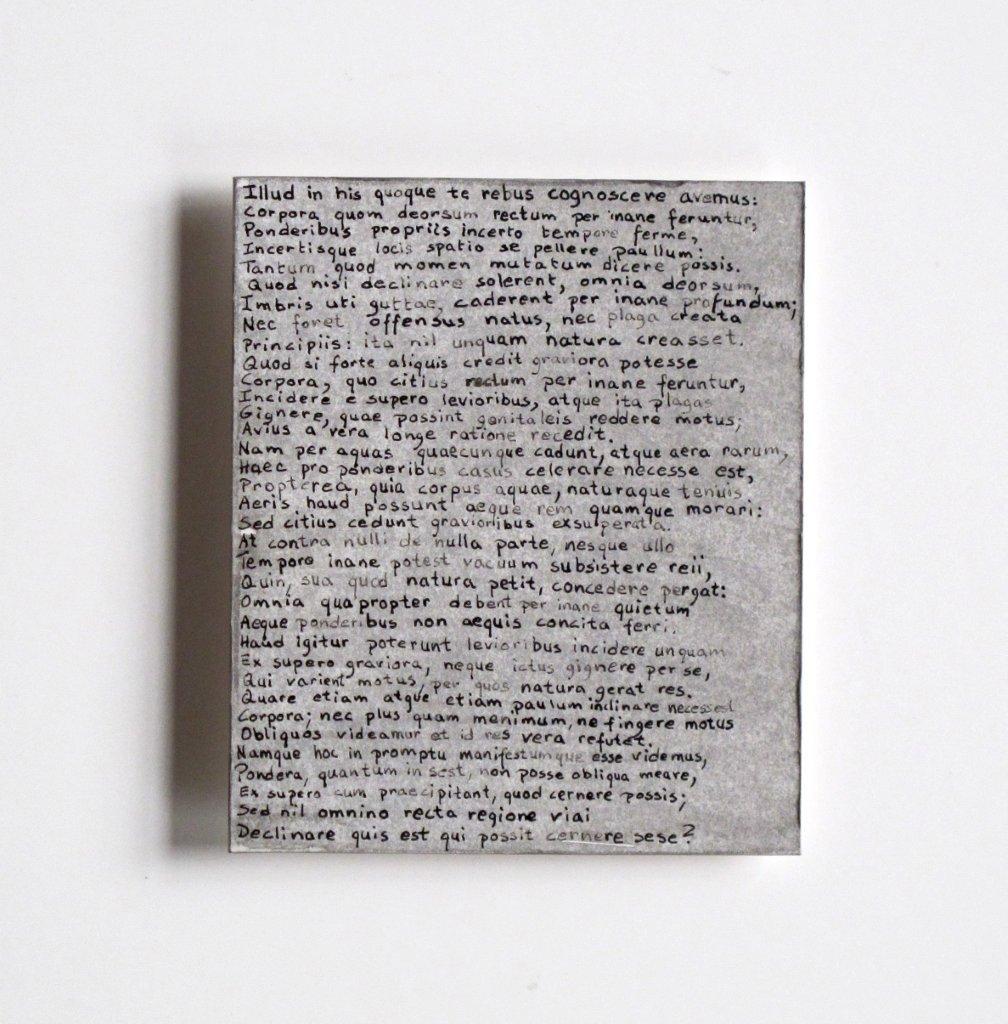 Illud in his quoque te rebus cognoscere avemus:
Corpora quom deorsum rectum per inane feruntur,
Ponderibus propriis incerto tempore ferme,
Incertisque locis spatio se pellere paullum:
Tantum quod momen mutatum dicere possis.
Quod nisi declinare solerent, omnia deorsum,
Imbris uti guttae, caderent per inane profundum;
Nec foret offensus natus, nec plaga creata
Principiis: ita nil unquam natura creasset.
Quod si forte aliquis credit graviora potesse
Corpora, quo citius rectum per inane feruntur,
Incidere e supero levioribus, atque ita plagas
Gignere, quae possint genitaleis reddere motus;
Avius a vera longe ratione recedit.
Nam per aquas quaecunque cadunt, atque aera rarum,
Haec pro ponderibus casus celerare necesse est,
Propterea, quia corpus aquae, naturaque tenuis
Aeris, haud possunt aeque rem quamque morari:
Sed citius cedunt gravioribus exsuperata.
At contra nulli de nulla parte, nesque ullo
Tempore inane potest vacuum subsistere reii,
Quin, sua quod natura petit, concedere pergat:
Omnia quapropter debent per inane quietum
Aeque ponderibus non aequis concita ferri.
Haud igitur poterunt levioribus incidere unquam
Ex supero graviora, neque ictus gignere per se,
Qui varient motus, per quos natura gerat res.
Quare etiam atque etiam paulum inclinare necesse st
Corpora; nec plus quam menimum, ne fingere motus
Obliquos videamur et id res vera refutet.
Namque hoc in promptu manifestumque esse videmus,
Pondera, quantum in sest, non posse obliqua meare,
Ex supero cum praecipitant, quod cernere possis;
Sed nil omnino recta regione viai
Declinare quis est qui possit cernere sese?